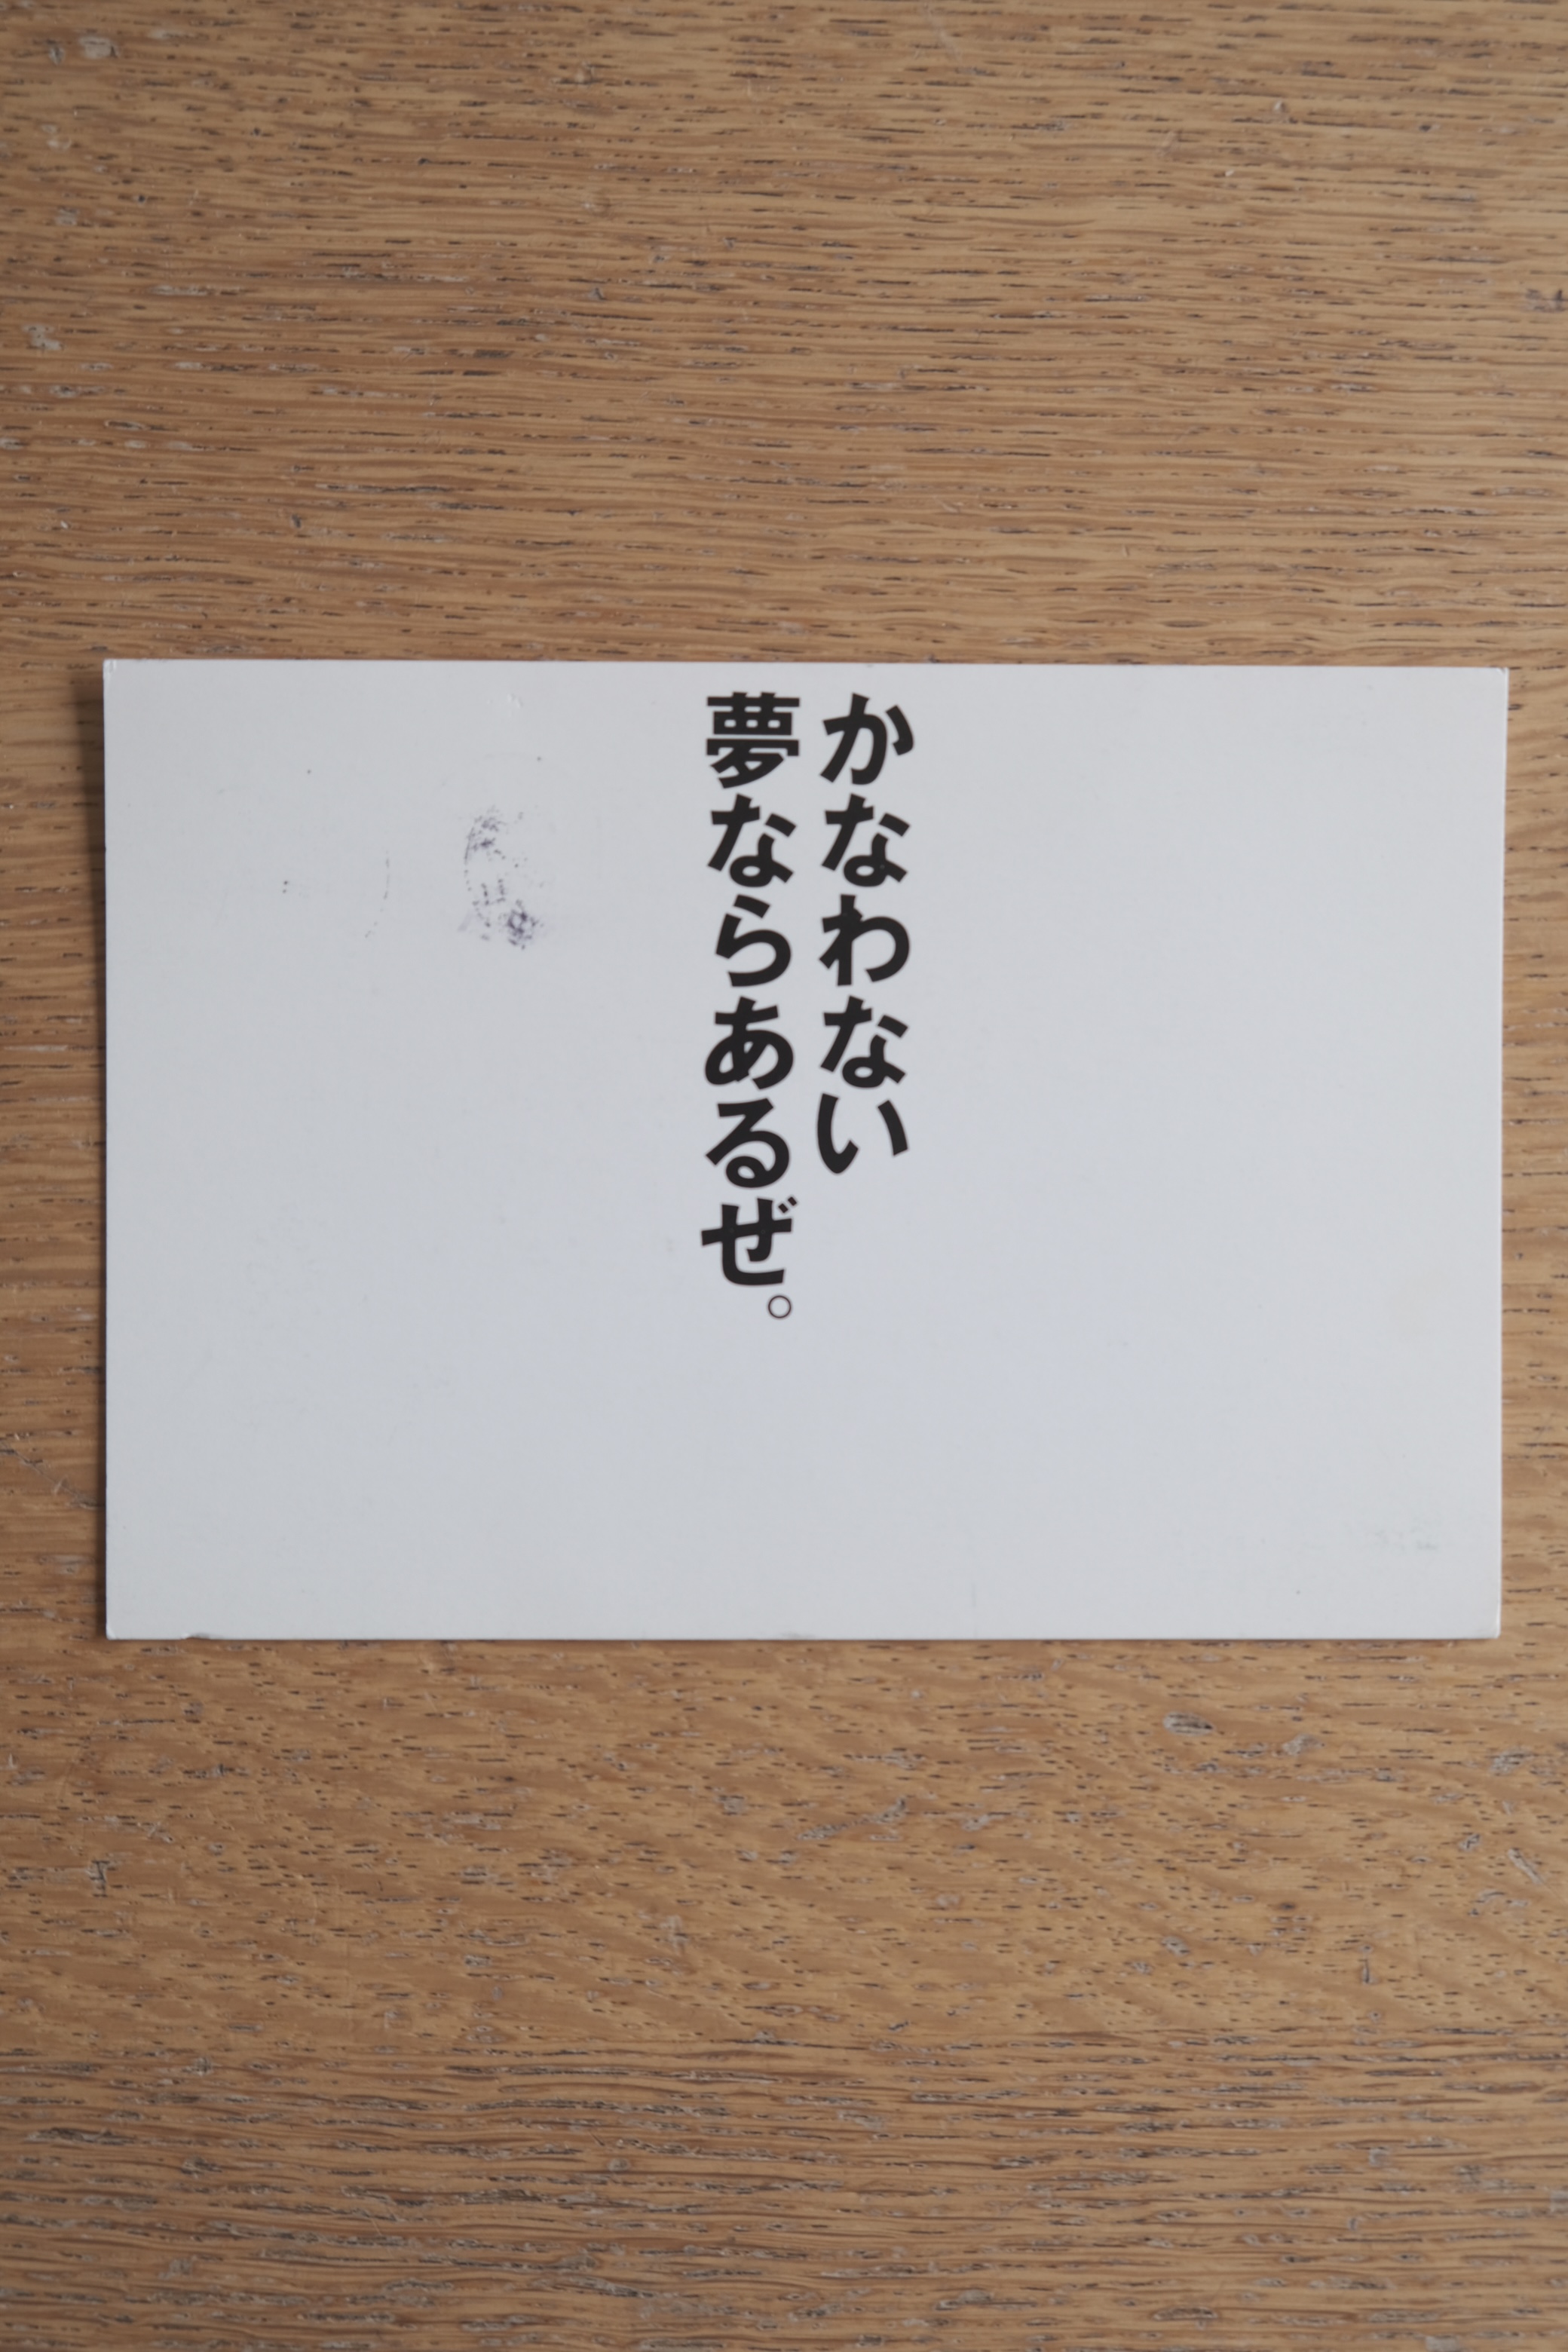 かなわない
夢ならあるぜ。